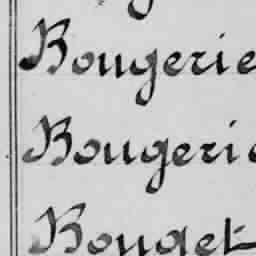 Bougerie
Bougeri
Bouget